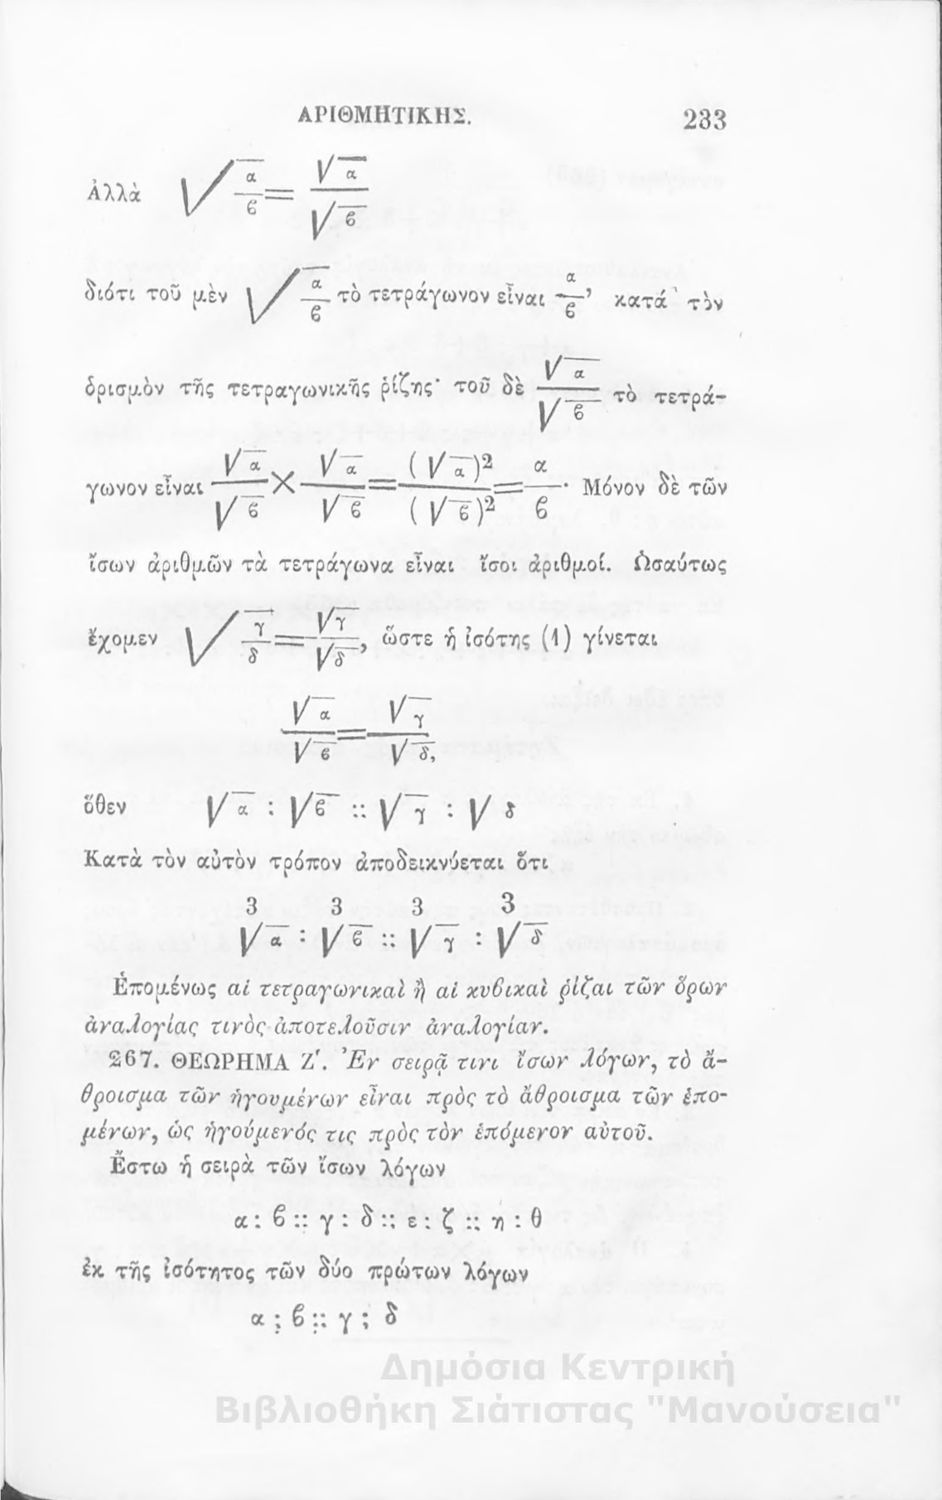 ΑΡΙΘΜΗΤΙΚΗΣ. 233
Ἀλλὰ √(α/ϐ) = √α/√ϐ
διότι τοῦ μὲν √(α/ϐ) τὸ τετράγωνον εἶναι α/ϐ, κατὰ τὸν
ὁρισμὸν τῆς τετραγωνικῆς ῥίζης· τοῦ δὲ √α/√ϐ τὸ τετρά-
γωνον εἶναι √α/√ϐ × √α/√ϐ = (√α)²/(√ϐ)² = α/ϐ· Μόνον δὲ τῶν
ἴσων ἀριθμῶν τὰ τετράγωνα εἶναι ἴσοι ἀριθμοί. Ὡσαύτως
ἔχομεν √(γ/δ) = √γ/√δ, ὥστε ἡ ἰσότης (1) γίνεται
√α/√ϐ = √γ/√δ,
ὅθεν √α : √ϐ :: √γ : √δ
Κατὰ τὸν αὐτὸν τρόπον ἀποδεικνύεται ὅτι
∛α : ∛ϐ :: ∛γ : ∛δ
Ἑπομένως αἱ τετραγωνικαὶ ἢ αἱ κυϐικαὶ ῥίζαι τῶν ὅρων
ἀναλογίας τινὸς ἀποτελοῦσιν ἀναλογίαν.
267. ΘΕΩΡΗΜΑ Ζ'. Ἐν σειρᾷ τινι ἴσων λόγων, τὸ ἄ-
θροισμα τῶν ἡγουμένων εἶναι πρὸς τὸ ἄθροισμα τῶν ἑπο-
μένων, ὡς ἡγούμενός τις πρὸς τὸν ἑπόμενον αὐτοῦ.
Ἔστω ἡ σειρὰ τῶν ἴσων λόγων
α : ϐ :: γ : δ :: ε : ζ :: η : θ
ἐκ τῆς ἰσότητος τῶν δύο πρώτων λόγων
α : ϐ :: γ : δ
Δημόσια Κεντρική
Βιβλιοθήκη Σιάτιστας "Μανούσεια"